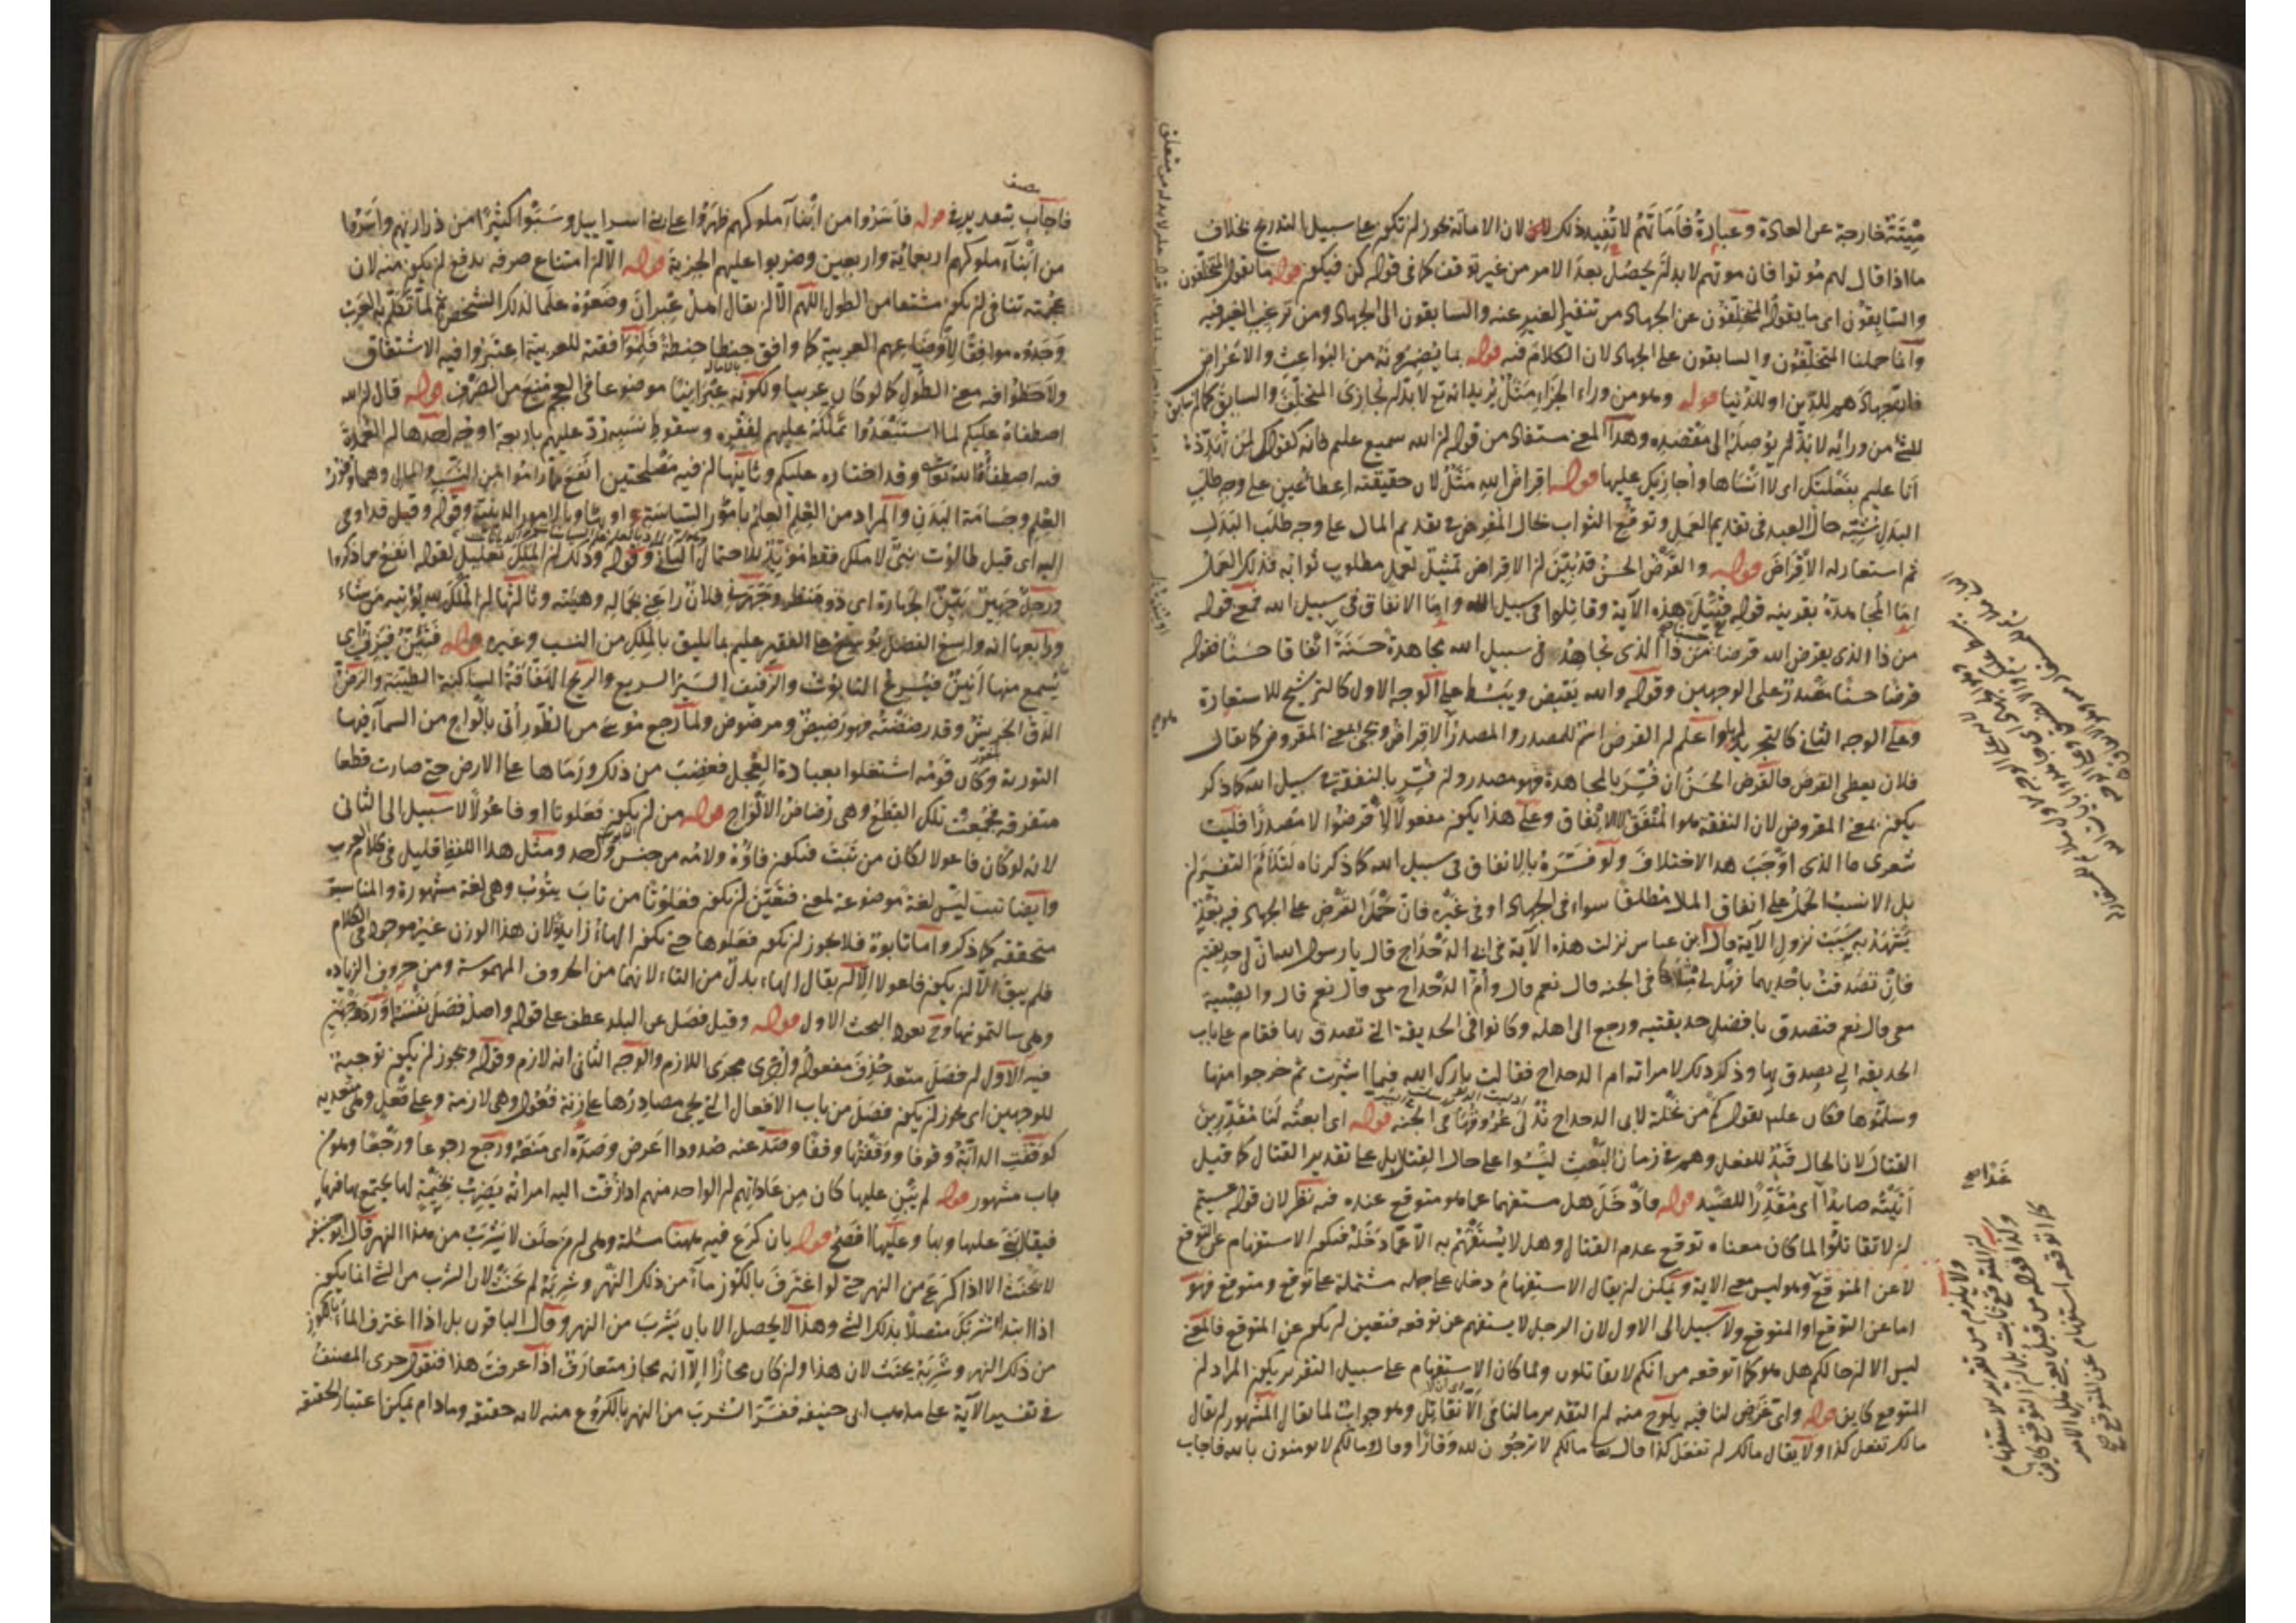 ميتة خارجة عن العادة وعبارة فأماتهم لا تفيد ذلك لان الاماتة يجوز ان تكون على سبيل التدريج بخلاف
ما اذا قال لهم موتوا فان موتهم لا بد ان يحصل بعد الامر من غير توقف كما فى قوله كن فيكون قوله ما يقوله المتخلفون
والسابقون اى ما يقوله المتخلفون عن الجهاد من تنفير الغير عنه والسابقون الى الجهاد ومن ترغيب الغير فيه
وانما حملنا المتخلفون والسابقون على الجهاد لان الكلام فيه قوله بما يضمرونه من البواعث والاغراض
فان جهادهم للدين او للدنيا قوله وهو من وراء الجزاء مثل يريد انه تع لا بد ان يجازى المتخلف والسابق
من ورائه لا بد ان يوصله الى مقصده وهذا المعنى مستفاد من قوله ان الله سميع عليم فانه كقولك لمن
انا عليم بفعلتك اى لا انساها واجازيك عليها قوله اقراض الله مثل لان حقيقته اعطاء عين على وجه طلب
البدل شبه حال العبد فى تقديم العمل وتوقع الثواب بحال المقرض فى تقديم المال على وجه طلب البدل
ثم استعار له الاقراض قوله والقرض الحسن قد تبين ان الاقراض تمثيل لعمل مطلوب ثوابه فذلك العمل
اما المجاهدة بقرينة قوله قبيل هذه الآية وقاتلوا فى سبيل الله واما الانفاق فى سبيل الله فمع قوله
من ذا الذى يقرض الله قرضا من ذا الذى يجاهد فى سبيل الله مجاهدة حسنة او انفاقا حسنا فقوله
قرضا حسنا مصدر على الوجهين وقوله والله يقبض ويبسط على الوجه الاول كالترشيح للاستعارة
وعلى الوجه الثانى كالتجريد لها واعلم ان القرض اسم للمصدر والمصدر الاقراض ويجئ بمعنى المقروض كما يقال
فلان يعطى القرض فالقرض الحسن ان فسر بالمجاهدة فهو مصدر وان فسر بالنفقة فى سبيل الله كما ذكر
يكون بمعنى المقروض لان النفقة هو المنفق لا الانفاق وعلى هذا يكون مفعولا لاقرضوا لا مصدرا فليت
شعرى ما الذى اوجب هذا الاختلاف ولو فسره بالانفاق فى سبيل الله كما ذكرناه لتلاءم التفسيران
بل الانسب الحمل على انفاق المال مطلقا سواء فى الجهاد او فى غيره فان حمل القرض على الجهاد فيه بعد
يشهد به سبب نزول الآية قال ابن عباس نزلت هذه الآية فى ابى الدحداح قال يا رسول الله ان لى حديقتين
فان تصدقت باحديهما فهل لى مثلاها فى الجنة قال نعم قال وأم الدحداح معى قال نعم قال والصبية
معى قال نعم فتصدق بافضل حديقتيه ورجع الى اهله وكانوا فى الحديقة التى تصدق بها فقام على باب
الحديقة التى تصدق بها وذكر ذلك لامراته ام الدحداح فقالت بارك الله فيما اشتريت ثم خرجوا منها
وسلموها فكان عليم يقول كم من نخلة لابى الدحداح تدلى عروقها فى الجنة قوله اى ابعثه لنا مقدرين
القتال لان الحال قيد للفعل وهم فى زمان البعث ليسوا على حال القتال بل على تقدير القتال كما قيل
أتيته صايدا اى مقدرا للصيد قوله فادخل هل مستفهما عما هو متوقع عنده فيه نظر لان قوله عسيتم
ان لا تقاتلوا لما كان معناه توقع عدم القتال وهل لا يستفهم به الا عما دخله فيكون الاستفهام عن التوقع
لا عن المتوقع وهو ليس معنى الاية ويمكن ان يقال الاستفهام دخل على جملة مشتملة على توقع ومتوقع فهو
اما عن التوقع او المتوقع ولا سبيل الى الاول لان الرجل لا يستفهم عن توقعه فتعين ان يكون عن المتوقع فالمعنى
ليس الا ان حالكم هل هو كما اتوقعه من انكم لا تقاتلون ولما كان الاستفهام على سبيل التقرير يكون المراد ان
المتوقع كاين قوله واى غرض لنا فيه يلوح منه ان التقدير ما لنا فى ألا نقاتل وهو جواب لما يقال المشهور ان يقال
مالك تفعل كذا ولا يقال مالك ان تفعل كذا قال تعالى مالكم لا ترجون لله وقارا وقال ومالكم لا تومنون بالله فاجاب
غذا صح
ولا يلزم من تقرير الاستفهام
ان المتوقع ثابت بل ان التوقع كاين
وكذا قوله من قبل يعنى هل الامر
كما اتوقعه استفهام عن المتوقع صح
فاجاب بتقدير فى قوله فأسروا من أبناء ملوكهم ظهروا على بنى اسرائيل وسبوا كثيرا من ذراريهم وأسروا
من ابناء ملوكهم اربعمائة واربعين وضربوا عليهم الجزية قوله الا ان امتناع صرفه يدفع ان يكون منه لان
عجمته تنافى ان يكون مشتقا من الطول اللهم الا ان يقال اهل عبران وضعوه علما لذلك الشخص ثم لما تكلم به العرب
وجدوه موافقا لاوضاعهم العربية كما وافق حنطا حنطة فلموافقته للعربية اعتبروا فيه الاشتقاق
ولاحظوا فيه معنى الطول كما لو كان عربيا ولكونه عبرانيا موضوعا فى العجم منع من الصرف قوله قال ان الله
اصطفاه عليكم لما استبعدوا تملكه عليهم لفقره وسقوط نسبه رد عليهم باربعة اوجه احدها ان العمدة
فيه اصطفاء الله تعالى وقد اختاره عليكم وثانيها ان فيه مصلحتين انفع مما راموا من النسب والمال وهما وفور
العلم وجسامة البدن والمراد من العلم العلم بأمور السياسة او بها وبالامور الدينية وقوله وقيل قد اوحى
اليه اى قيل طالوت نبى لا ملك فقط مؤيد للاحتمال الثانى وقوله وذلك ان الملك تعليل لقوله انفع مما ذكروا
ورجل جهير بين الجهارة اى ذو منظر وجهرنى فلان راعنى بجماله وهيئته وثالثها ان الملك لله يؤتيه من شاء
ورابعها انه واسع الفضل يوسع على الفقير عليم بما يليق بالملك من النسب وغيره قوله فتئن فيزف اى
يسمع منها انين فيسرع التابوت والزفيف السير السريع والريح الهفافة الساكنة الطيبة والرض
الدق الجريش وقد رضضته فهو رضيض ومرضوض ولما رجع موسى من الطور أتى بالواح من السماء فيها
التورية وكان قومه اشتغلوا بعبادة العجل فغضب من ذلك ورماها على الارض حتى صارت قطعا
متفرقة فجمعت تلك القطع وهى رضاض الالواح قوله من ان يكون فعلوتا او فاعولا لا سبيل الى الثانى
لانه لو كان فاعولا لكان من تبت فيكون فاؤه ولامه من جنس واحد ومثل هذا اللفظ قليل فى كلام العرب
وايضا تبت ليس لغة موضوعة لمعنى فتعين ان يكون فعلوتا من تاب يتوب وهى لغة مشهورة والمناسبة
متحققة كما ذكر واما تابوه فلا يجوز ان يكون فعلوها حتى يكون الهاء زايدا لان هذا الوزن غير موجود فى الكلام
فلم يبق الا ان يكون فاعولا الا ان يقال الهاء بدل من التاء لانهما من الحروف المهموسة ومن حروف الزيادة
وهى سالتمونيها وح يعود البحث الاول قوله وقيل فصل عن البلد عطف على قوله واصله فصل نفسه اورد وجهين
فيه الاول ان فصل متعد حذف مفعوله وأجرى مجرى اللازم والوجه الثانى انه لازم وقوله ويجوز ان يكون توجيه
للوجهين اى يجوز ان يكون فصل من باب الافعال التى يجئ مصادرها على زنة فعول وهى لازمة وعلى فعل وهى متعدية
كوقفت الدابة وقوفا ووقفتها وقفا وصد عنه صدودا اعرض وصده اى منعه ورجع رجوعا ورجعا وهو من
باب مشهور قوله لم يبن عليها كان من عاداتهم ان الواحد منهم اذا زفت اليه امراته يضرب بخيمة لها يجتمع بها فيها
فيقال بنى عليها وبها وعليها افصح قوله بان كرع فيه ههنا مسئلة وهى ان من حلف لا يشرب من هذا النهر قال ابو حنيفة
لا يحنث الا اذا كرع من النهر حتى لو اغترف بالكوز ماء من ذلك النهر وشربه لم يحنث لان الشرب من الشئ انما يكون
اذا ابتدا شربك متصلا بذلك الشئ وهذا لا يحصل الا بان يشرب من النهر وقال الباقون بل اذا اغترف الماء بالكوز
من ذلك النهر وشربه يحنث لان هذا وان كان مجازا الا انه مجاز متعارف اذا عرفت هذا فنقول جرى المصنف
فى تفسير الآية على مذهب ابى حنيفه ففسر الشرب من النهر بالكروع منه لانه حقيقة وما دام يمكن اعتبار الحقيقة